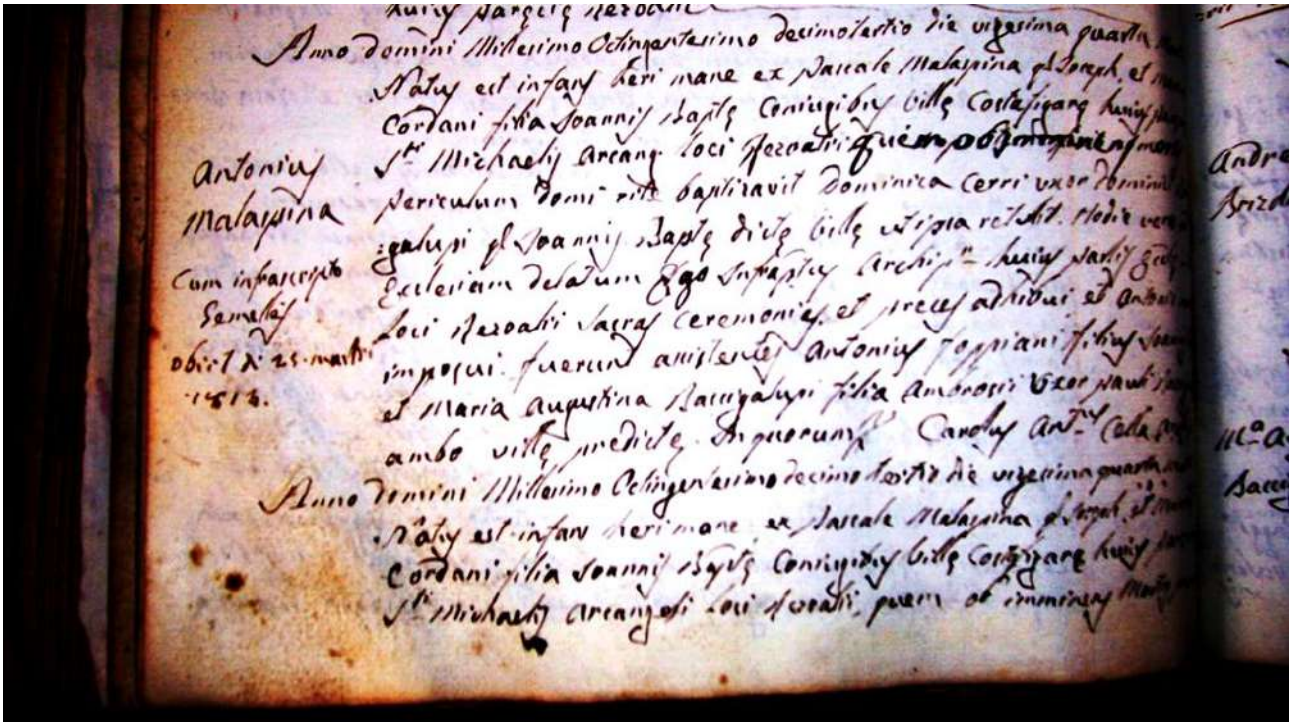 hujus parecię Rezoalii
Anno Domini Millesimo Octingentesimo decimotertio die vigesima quarta
Natus est infans heri mane ex Pascale Malaspina qd Joseph, et
Cordani filia Joannis Baptę Coniugibus villę Costafigarę hujus
Sti Michaelis Arcang. loci Rezoalii quem ob
periculum domi rite baptizavit Dominica Cerri uxor Dominici
galupi qd Joannis Baptę dictę villę ut ipsa retulit. Hodie vero
Ecclesiam delatum Ego Infraptus Archipr hujus parlis
loci Rezoalii sacras ceremonias et preces adhibui et Antonius
imposui. fuerunt assistentes Antonius Foppiani filius
et Maria Augustina Baccigalupi filia Ambrosii uxor Pauli
ambo villę predictę. In quorum Carolus Antus Cella
Antonius
Malaspina
Cum infrascripto
Gemellus
obiit di 25. martii
1813.
Anno Domini Millesimo Octingentesimo decimo tertio die vigesima quarta
Natus est infans heri mane ex Pascale Malaspina qd Joseph, et
Cordani filia Joannis Baptę Coniugibus villę Costafigarę hujus
Sti Michaelis Arcangeli loci Rezoalii, quem ob imminens
Andre
Brizol
Ma A
Bacci